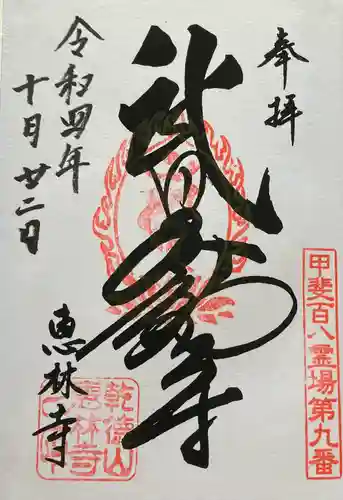 奉拝
武田不動尊
令和四年
十月廿二日
恵林寺
甲斐百八霊場第九番
乾徳山
恵林寺